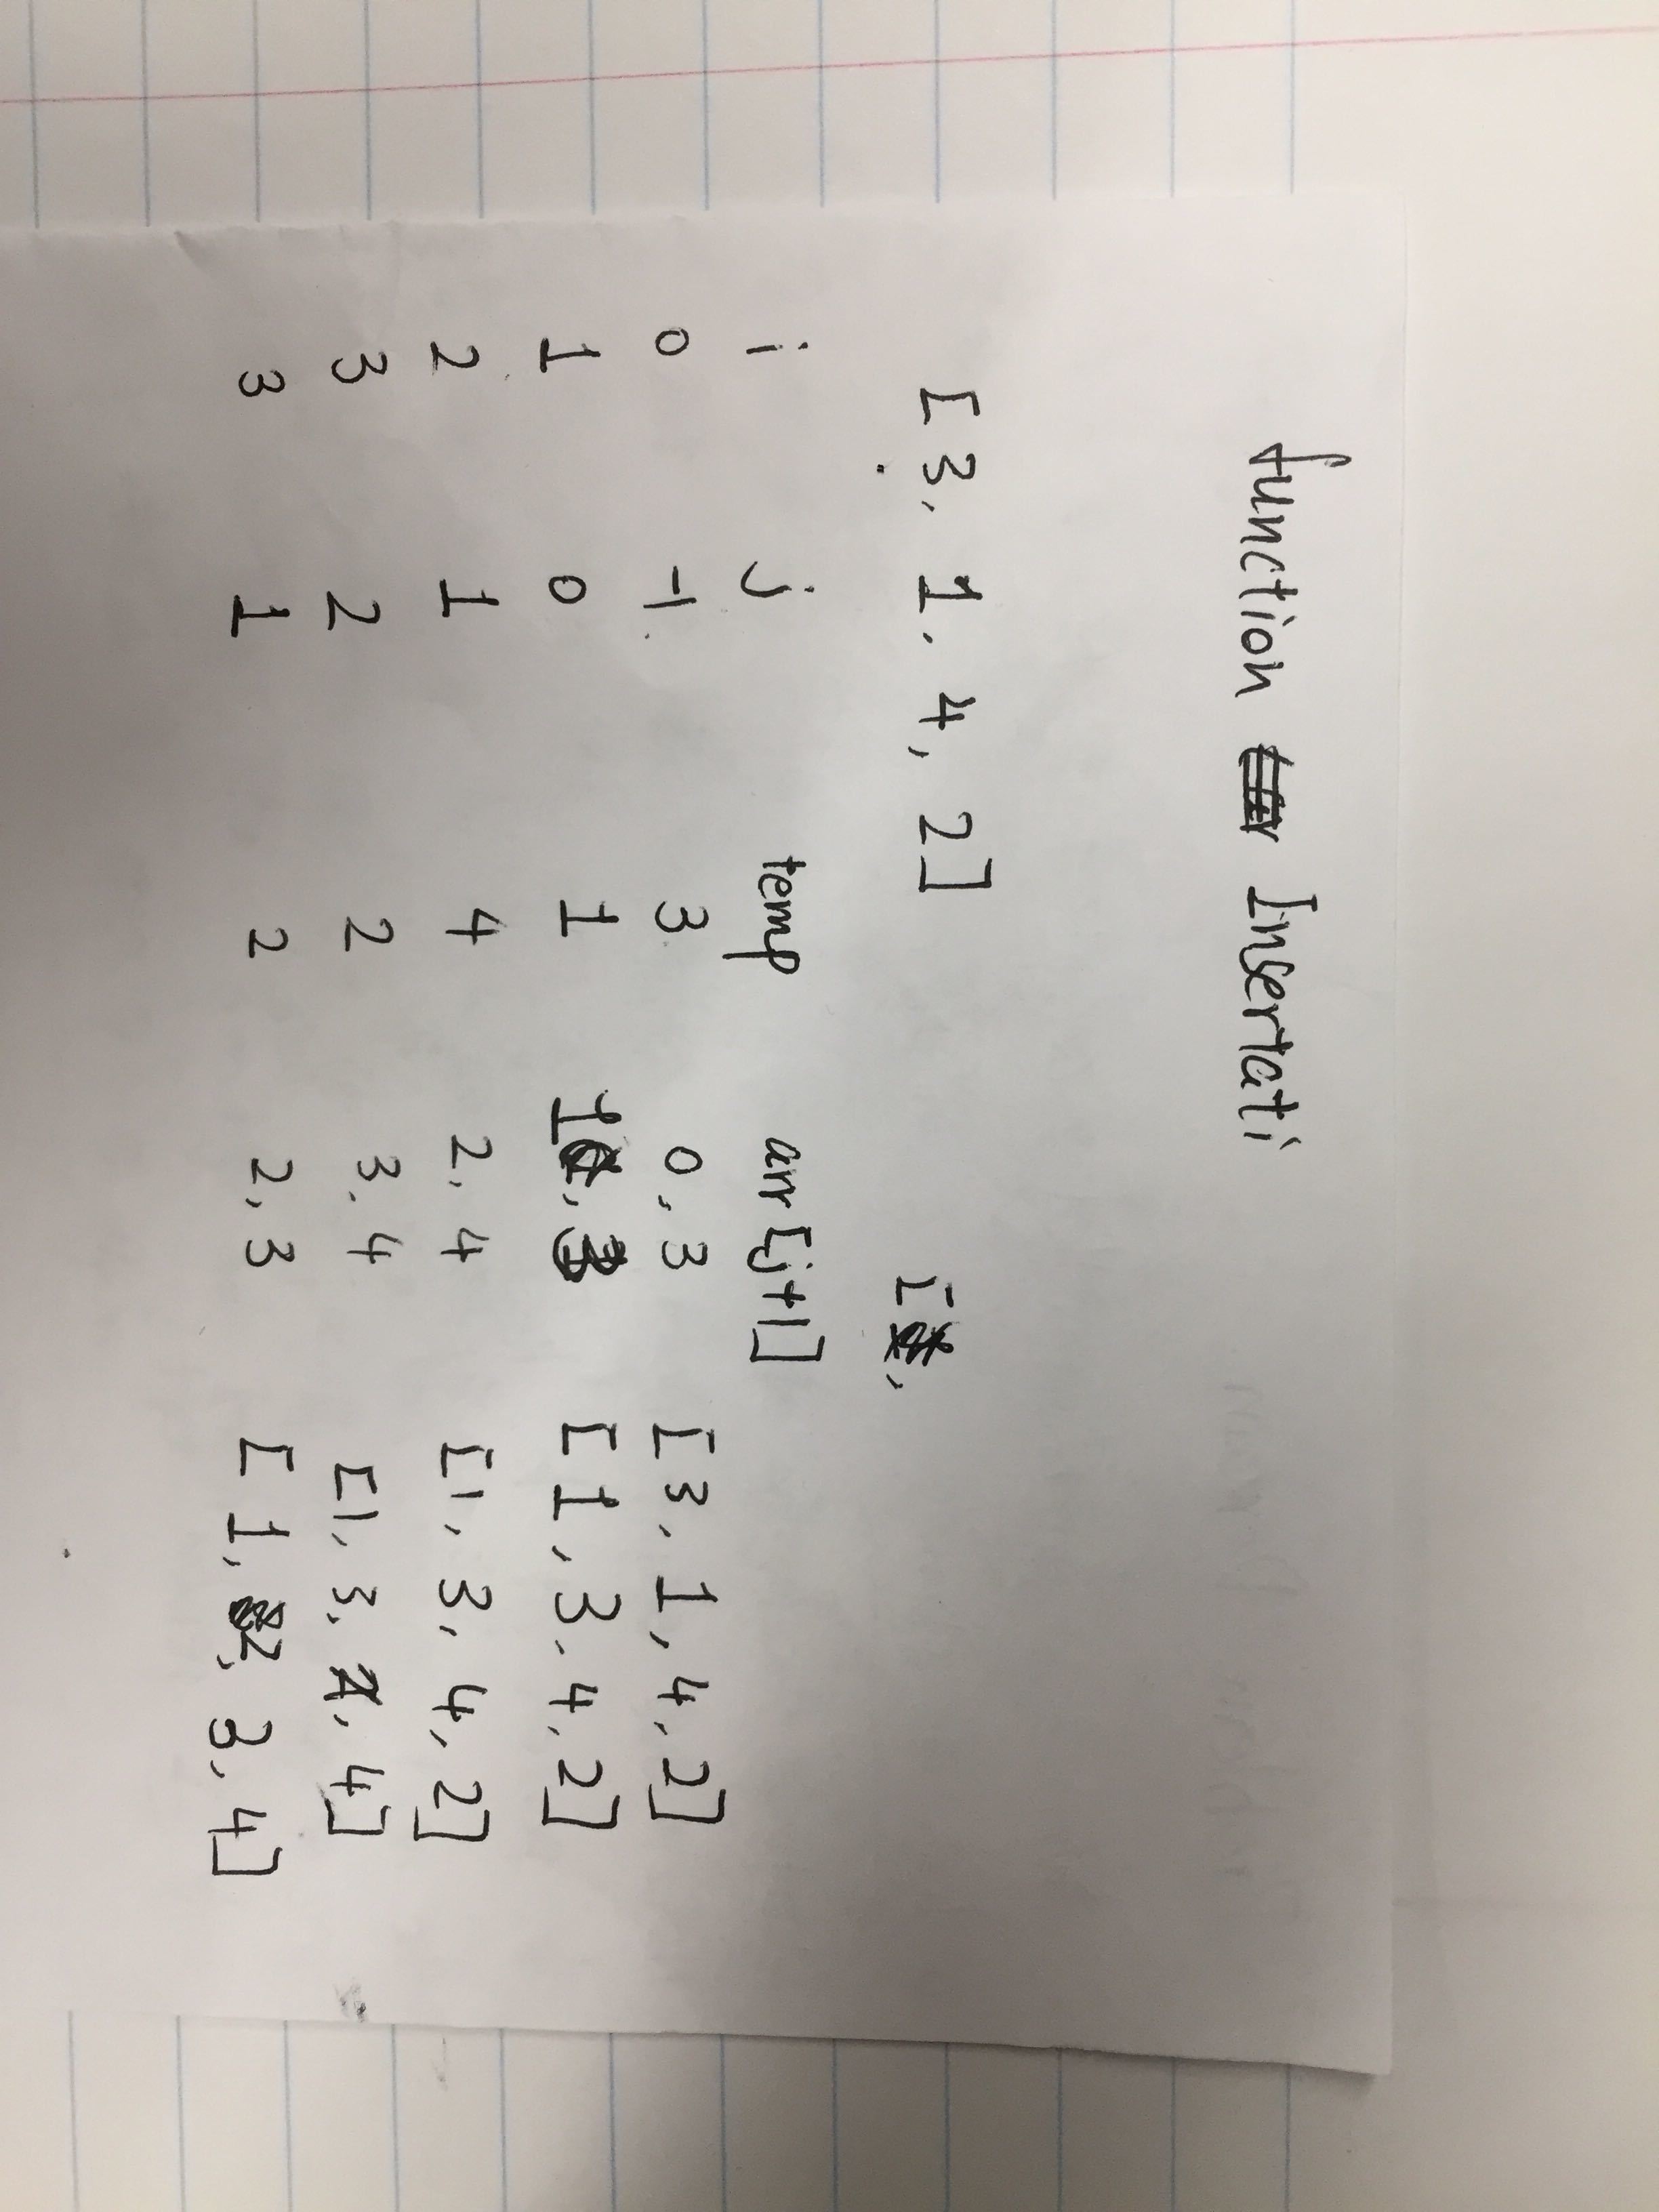 function Insertati
[3, 1, 4, 2] [
i j temp arr[j+1]
0 -1 3 0, 3 [3, 1, 4, 2]
1 0 1 1, [1, 3, 4, 2]
2 1 4 2, 4 [1, 3, 4, 2]
3 2 2 3, 4 [1, 3, 4]
3 1 2 2, 3 [1, 2, 3, 4]